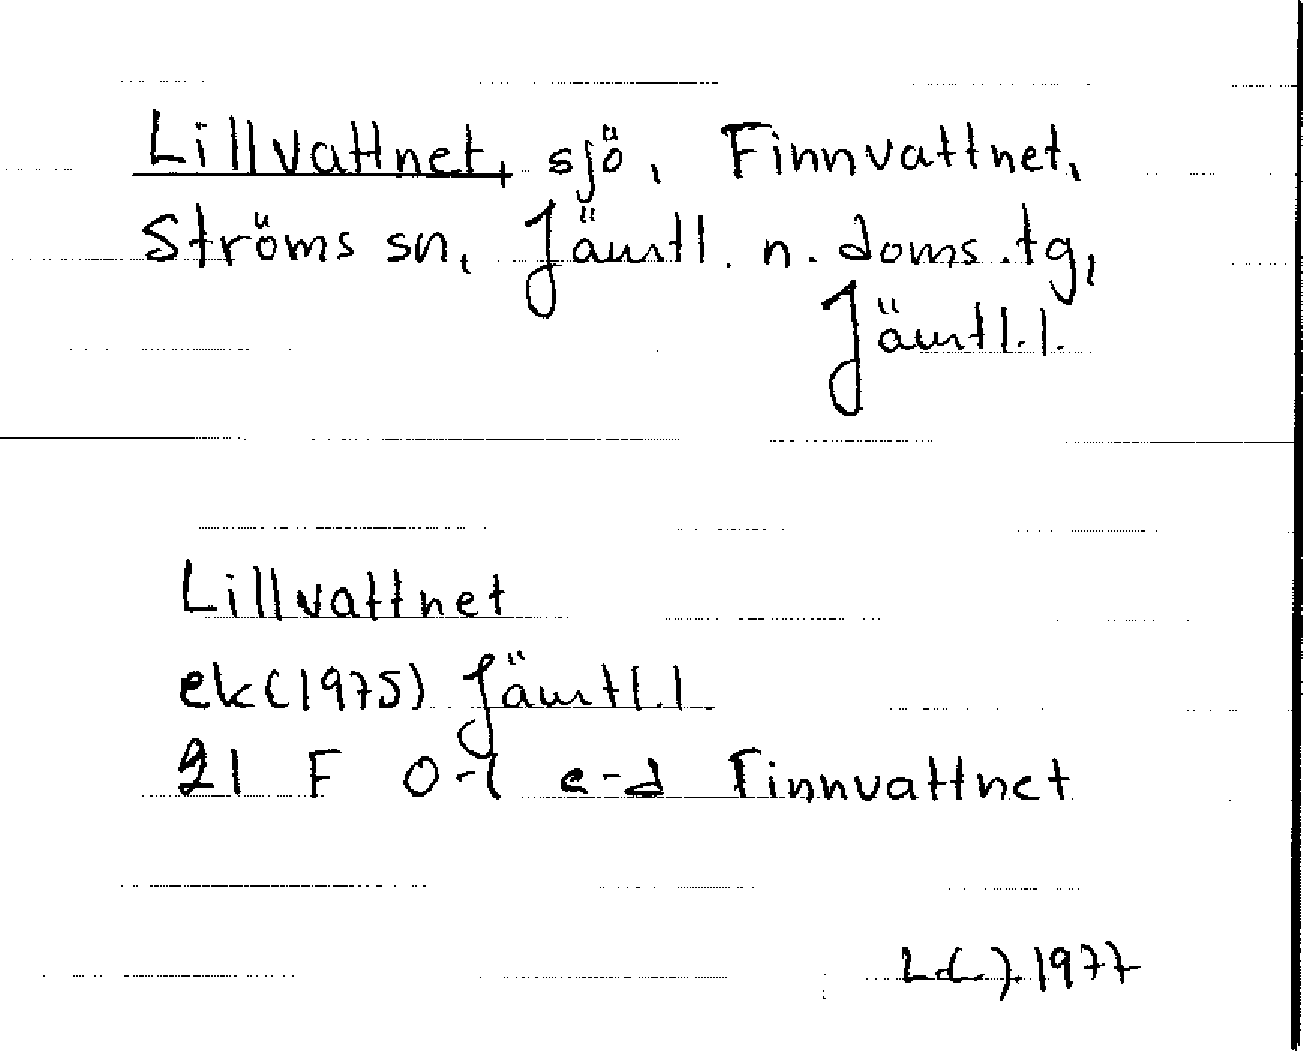 Lillvattnet, sjö, Finnvattnet,
Ströms sn, Jämtl. n. doms.tg,
Jämtl.l.
Lillvattnet
ek(1975) Jämtl.l
21 F 0-1 c-d Finnvattnet
1977